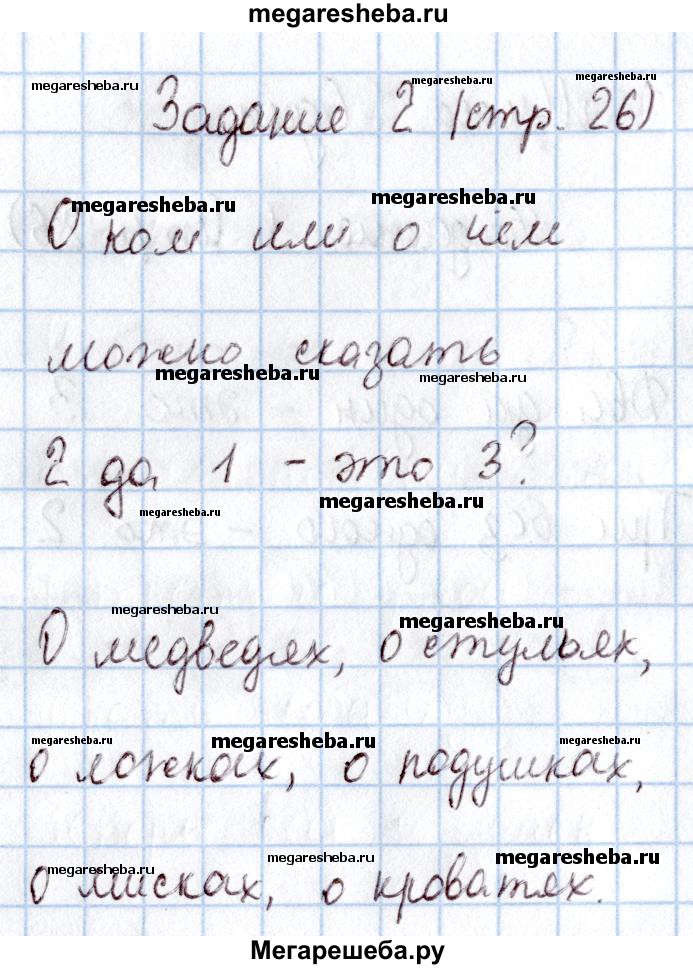 megaresheba.ru
megaresheba.ru megaresheba.ru megaresheba.ru
Задание 2 (стр. 26)
megaresheba.ru megaresheba.ru
О ком или о чём
можно сказать
megaresheba.ru megaresheba.ru
2 да 1 - это 3?
megaresheba.ru megaresheba.ru
megaresheba.ru megaresheba.ru
О медведях, о стульях,
megaresheba.ru megaresheba.ru megaresheba.ru
о ложках, о подушках,
megaresheba.ru megaresheba.ru megaresheba.ru
о мисках, о кроватях.
Мегарешеба.ру